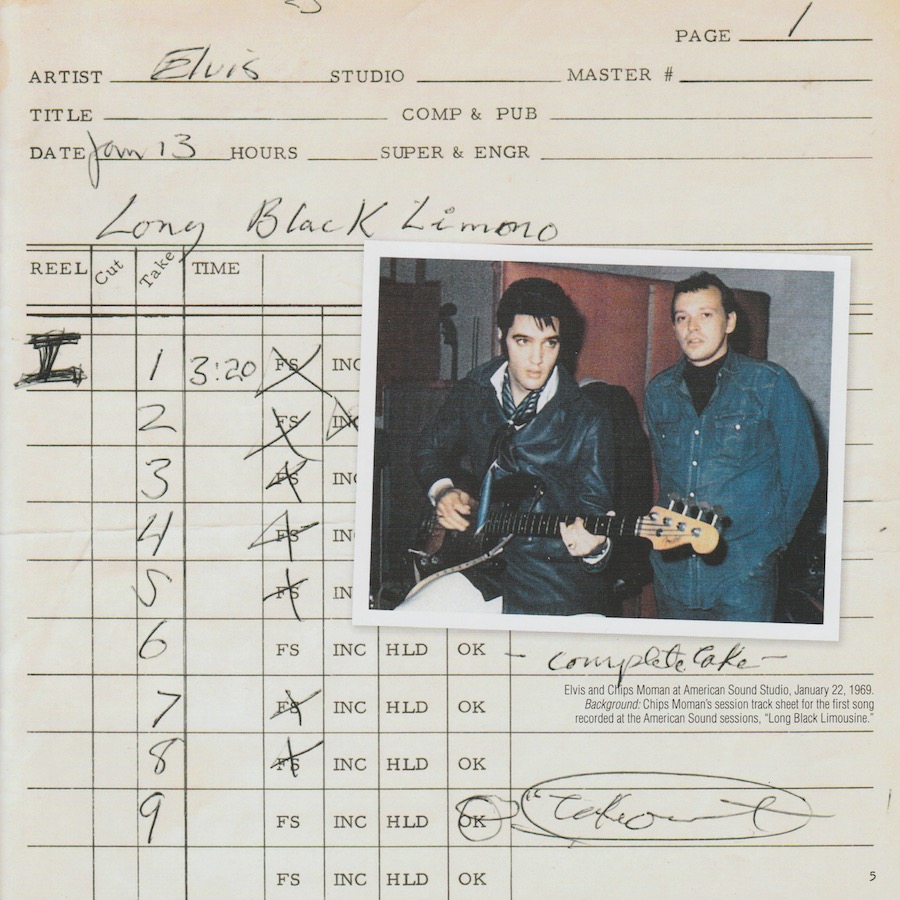 PAGE 1
ARTIST Elvis STUDIO MASTER #
TITLE COMP & PUB
DATE Jan 13 HOURS SUPER & ENGR
Long Black Limono
REEL Cut Take TIME
I 1 3:20 FS INC
2 FS INC
3 FS INC
4 FS IN
5 FS IN
6 FS INC HLD OK - complete take -
Elvis and Chips Moman at American Sound Studio, January 22, 1969.
7 FS INC HLD OK
Background: Chips Moman's session track sheet for the first song
recorded at the American Sound sessions, "Long Black Limousine."
8 FS INC HLD OK
9 FS INC HLD OK
FS INC HLD OK
5